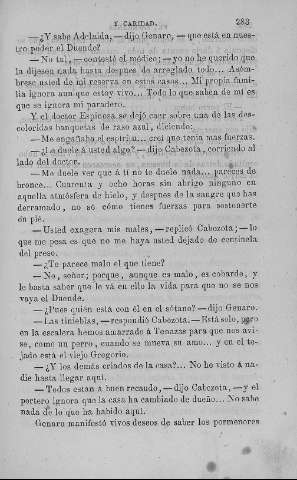 Y CARIDAD. 283
—¿Y sabe Adelaida, —dijo Genaro, — que está en nues-
tro poder el Duende?
—No tal, —contestó el médico; —yo no he querido que
la dijesen nada hasta despues de arreglado todo... Asóm-
brese usted de mi reserva en estos casos... Mi propia fami-
lia ignora aun que estoy vivo... Todo lo que saben de mí es
que se ignora mi paradero.
Y el doctor Espinosa se dejó caer sobre una de las des-
coloridas banquetas de raso azul, diciendo:
—Me engañaba el espíritu... creí que tenia mas fuerzas.
—¿Le duele á usted algo? —dijo Cabezota, corriendo al
lado del doctor.
—Me duele ver que á tí no te duele nada... pareces de
bronce... Cuarenta y ocho horas sin abrigo ninguno en
aquella atmósfera de hielo, y despues de la sangre que has
derramado, no sé cómo tienes fuerzas para sostenerte
en pié.
—Usted exagera mis males, —replicó Cabezota; —lo
que me pesa es que no me haya usted dejado de centinela
del preso.
—¿Te parece malo el que tiene?
—No, señor; porque, aunque es malo, es cobarde, y
le basta saber que le vá en ello la vida para que no se nos
vaya el Duende.
—¿Pues quién está con él en el sótano? —dijo Genaro.
—Las tinieblas, —respondió Cabezota. —Está solo, pero
en la escalera hemos amarrado á Tenazas para que nos avi-
se, como un perro, cuando se mueva su amo... y en el te-
jado está el viejo Gregorio.
—¿Y los demás criados de la casa?... No he visto á na-
die hasta llegar aquí.
—Todos estan á buen recaudo, —dijo Cabezota, —y el
portero ignora que la casa ha cambiado de dueño... No sabe
nada de lo que ha habido aquí.
Genaro manifestó vivos deseos de saber los pormenores